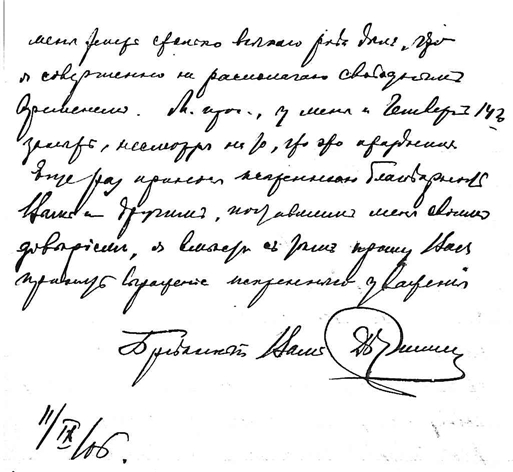 меня теперь столько всякого рода дел, что
я совершенно не располагаю свободным
временем. М. проч., у меня и Четверг 14
занят, несмотря на то, что это праздник
Еще раз приношу искреннюю благодарность
Вам и другим, почтившим меня своим
доверием, я вместе с тем прошу Вас
принять выражение искреннего уважения
Вам
11/IX/06.